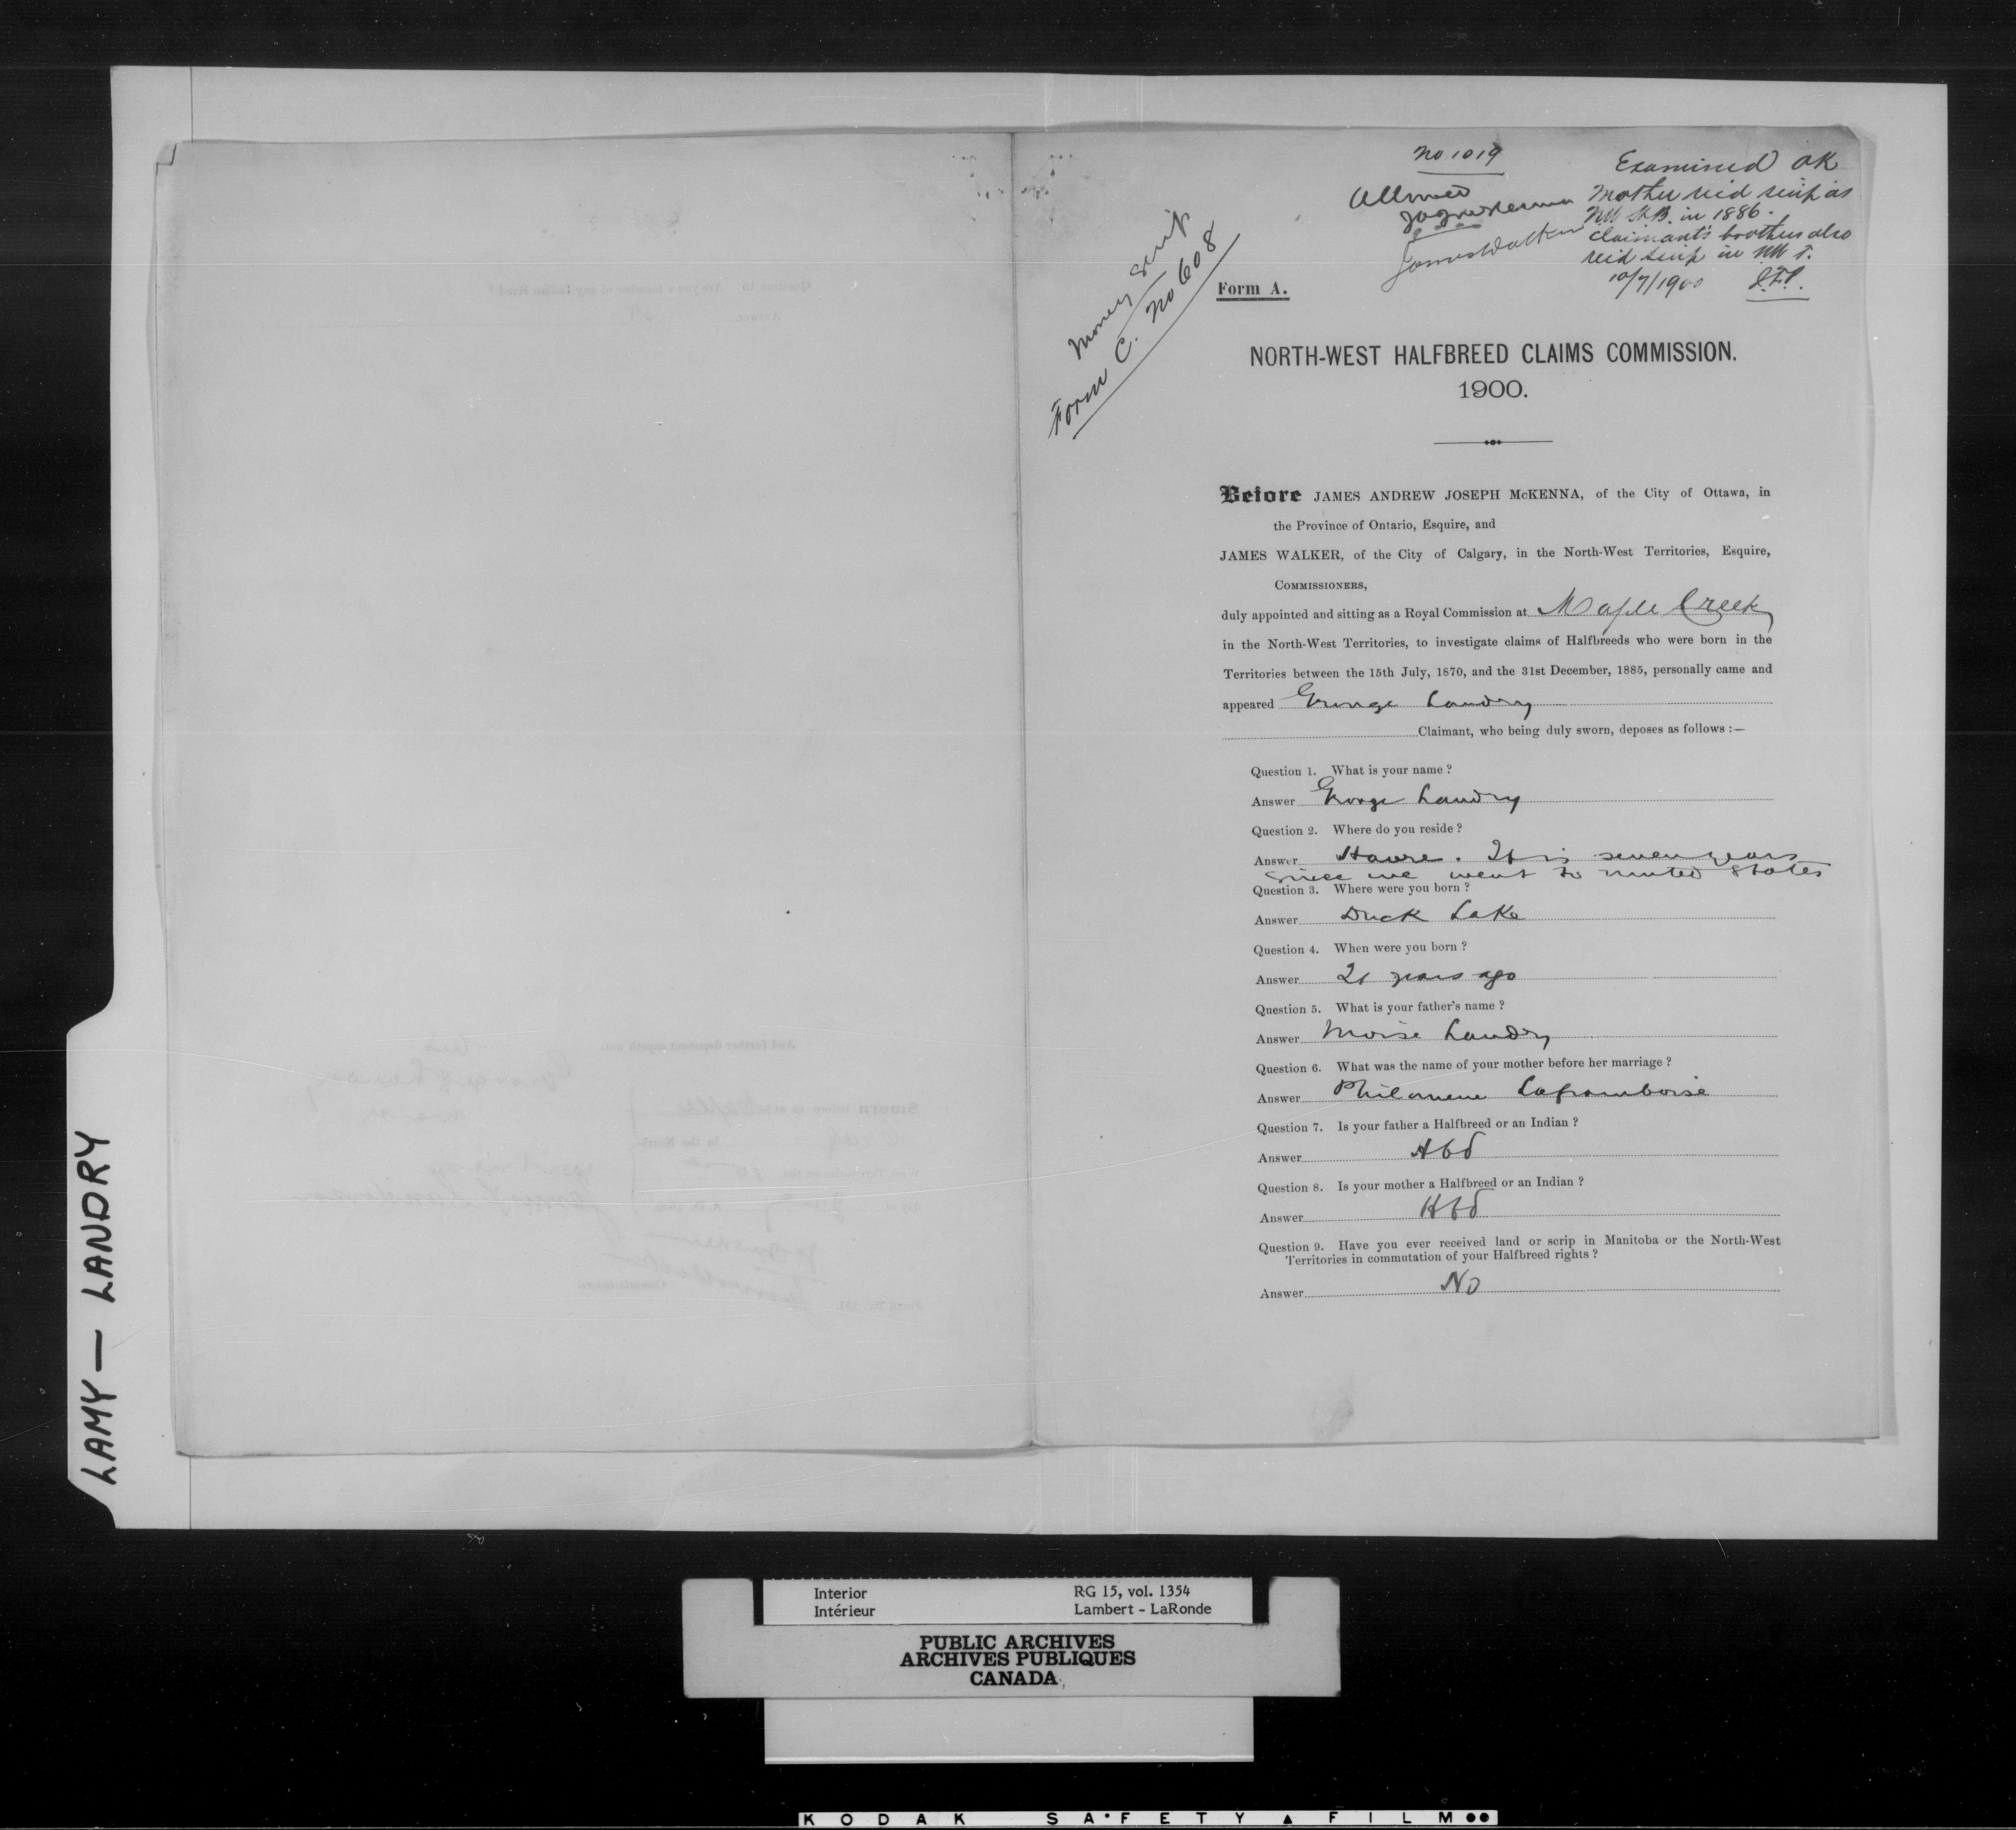 No 1019
Allowed
JAJ McKenna
James Walker
Examined OK
Mother rec'd scrip as
NW H.B. in 1886.
Claimant's brothers also
rec'd scrip in NW T.
10/7/1900
Money Scrip
Form C. No 608
Form A.
NORTH-WEST HALFBREED CLAIMS COMMISSION.
1900.
Before JAMES ANDREW JOSEPH McKENNA, of the City of Ottawa, in
the Province of Ontario, Esquire, and
JAMES WALKER, of the City of Calgary, in the North-West Territories, Esquire,
COMMISSIONERS,
duly appointed and sitting as a Royal Commission at Maple Creek
in the North-West Territories, to investigate claims of Halfbreeds who were born in the
Territories between the 15th July, 1870, and the 31st December, 1885, personally came and
appeared George Landry
Claimant, who being duly sworn, deposes as follows :—
Question 1. What is your name ?
Answer George Landry
Question 2. Where do you reside ?
Answer Havre. It is seven years
since we went to united States
Question 3. Where were you born ?
Answer Duck Lake
Question 4. When were you born ?
Answer 21 years ago
Question 5. What is your father's name ?
Answer Moise Landry
Question 6. What was the name of your mother before her marriage ?
Answer Philomene Laframboise
Question 7. Is your father a Halfbreed or an Indian ?
Answer Hbd
Question 8. Is your mother a Halfbreed or an Indian ?
Answer Hbd
Question 9. Have you ever received land or scrip in Manitoba or the North-West
Territories in commutation of your Halfbreed rights ?
Answer No
LAMY — LANDRY
Interior
Intérieur
RG 15, vol. 1354
Lambert - LaRonde
PUBLIC ARCHIVES
ARCHIVES PUBLIQUES
CANADA
KODAK SAFETY FILM